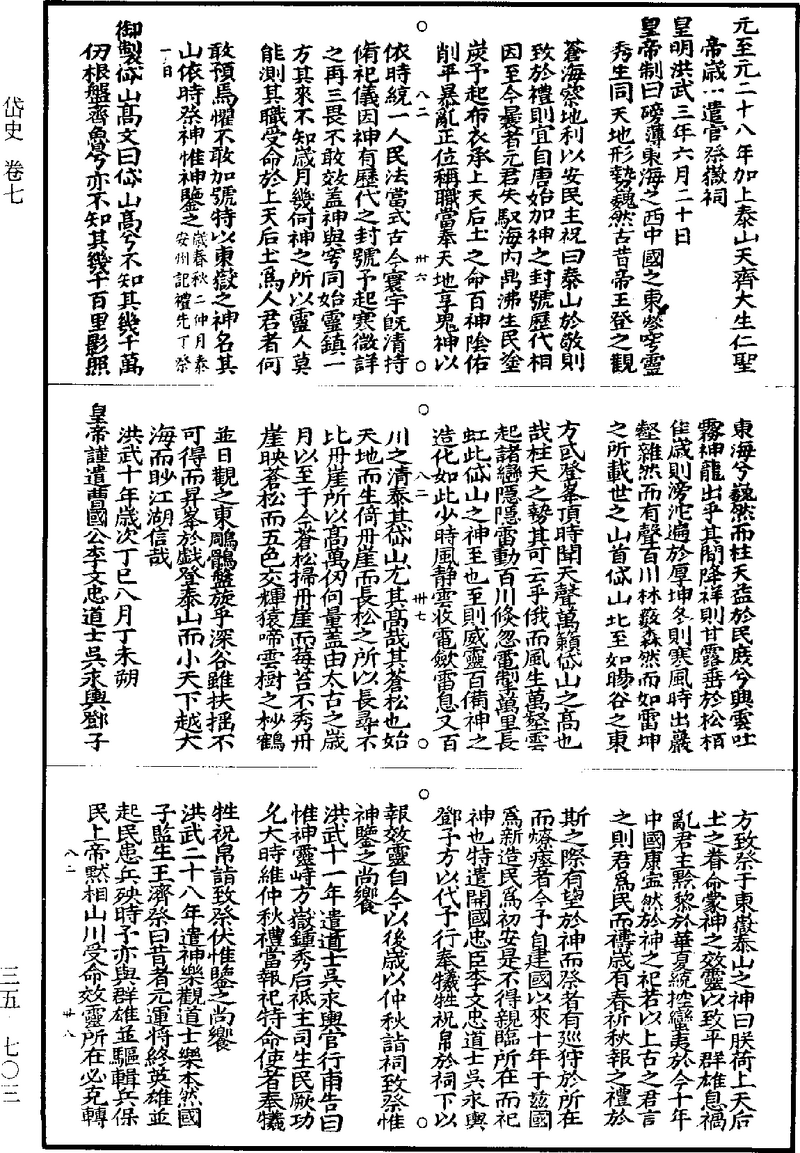 岱史 卷七
三五・七〇三
元至元二十八年加上泰山天齊大生仁聖
帝歲一遣官祭嶽祠
皇明洪武三年六月二十日
皇帝制曰磅薄東海之西中國之東參穹靈
秀生同天地形勢巍然古昔帝王登之觀
蒼海察地利以安民主祝曰泰山於敬則
致於禮則宜自唐始加神之封號歷代相
因至今曩者元君失馭海內鼎沸生民塗
炭予起布衣承上天后土之命百神陰佑
削平暴亂正位稱職當奉天地享鬼神以
八二 卅六
依時統一人民法當式古今寰宇旣清特
脩祀儀因神有歷代之封號予起寒微詳
之再三畏不敢效蓋神與穹同始靈鎮一
方其來不知歲月幾何神之所以靈人莫
能測其職受命於上天后土爲人君者何
敢預焉懼不敢加號特以東嶽之神名其
山依時祭神惟神鑒之歲春秋二仲月泰
安州記禮先丁祭
一日
御製岱山高文曰岱山高兮不知其幾千萬
仞根盤齊魯兮亦不知其幾千百里影照
東海兮巍然而柱天益於民庶兮興雲吐
霧神龍出乎其間降祥則甘露垂於松栢
隹歲則滂沱遍於厚坤冬則寒風時出巖
壑雜然而有聲百川林藪森然而如雷坤
之所載世之山首岱山北至如暘谷之東
方或登峯頂時聞天聲萬籟岱山之高也
哉柱天之勢其可云乎俄而風生萬壑雲
起諸巒隱隱雷動百川倏忽電掣萬里長
虹此岱山之神至也至則威靈百備神之
造化如此少時風静雲收電歛雷息又百
八二 卅七
川之清泰其岱山尤其高哉其蒼松也始
天地而生倚丹崖而長松之所以長尋不
比丹崖所以高萬仞何量蓋由太古之歲
月以至于今蒼松掃丹崖而莓苔不秀丹
崖映蒼松而五色交輝猿啼雲樹之杪鶴
並日觀之東鵰鶻盤旋乎深谷雖扶搖不
可得而昇峯於戲登泰山而小天下越大
海而眇江湖信哉
洪武十年歲次丁巳八月丁未朔
皇帝謹遣曹國公李文忠道士吳永輿鄧子
方致祭于東嶽泰山之神曰朕荷上天后
土之眷命蒙神之效靈以致平群雄息禍
亂君主黔黎於華夏統控蠻夷於今十年
中國康寍然於神之祀若以上古之君言
之則君爲民而禱歲有春祈秋報之禮於
斯之際有望於神而祭者有廵狩於所在
而燎瘞者今予自建國以來十年于兹國
爲新造民爲初安是不得親臨所在而祀
神也特遣開國忠臣李文忠道士吳永輿
鄧子方以代予行奉犧牲祝帛於祠下以
報效靈自今以後歲以仲秋詣祠致祭惟
神鑒之尚饗
洪武十一年遣道士吳永輿官行甫告曰
惟神靈峙方嶽鍾秀后祗主司生民厥功
允大時維仲秋禮當報祀特命使者奉犧
牲祝帛請致祭伏惟鑒之尚饗
洪武二十八年遣神樂觀道士樂本然國
子監生王濟祭曰昔者元運將終英雄並
起民患兵殃時予亦與群雄並驅輯兵保
民上帝黙相山川受命效靈所在必克轉
八二 卅八